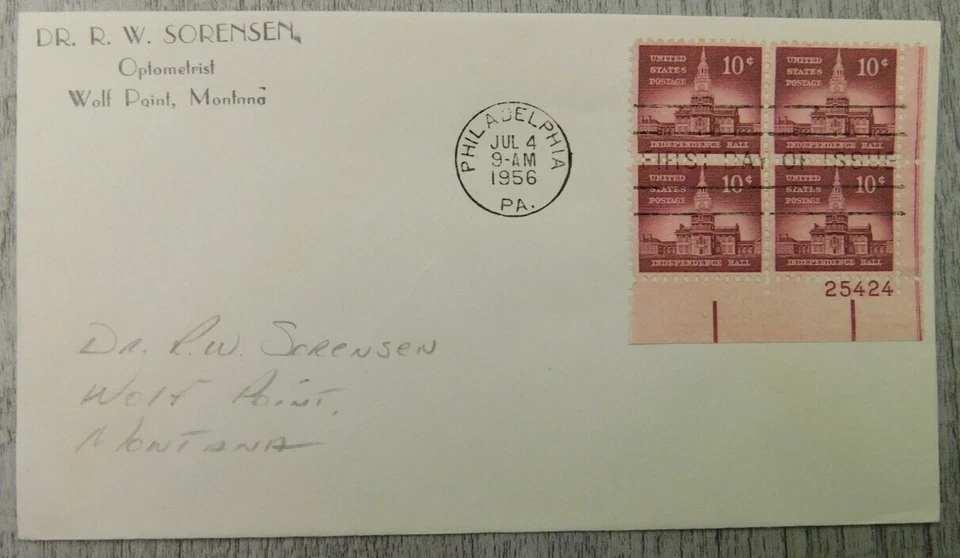 DR. R. W. SORENSEN
Optometrist
Wolf Point, Montana
PHILADELPHIA
JUL 4
9-AM
1956
PA.
UNITED STATES POSTAGE 10¢
INDEPENDENCE HALL
UNITED STATES POSTAGE 10¢
INDEPENDENCE HALL
FIRST DAY OF ISSUE
UNITED STATES POSTAGE 10¢
INDEPENDENCE HALL
UNITED STATES POSTAGE 10¢
INDEPENDENCE HALL
25424
Dr. R.W. Sorensen
Wolf Point,
Montana